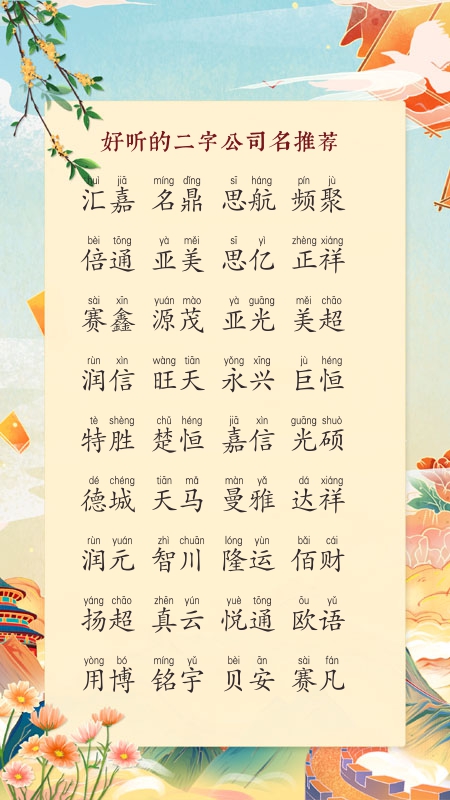 好听的二字公司名推荐
huì jiā míng dǐng sī háng pín jù
汇嘉 名鼎 思航 频聚
bèi tōng yà měi sī yì zhèng xiáng
倍通 亚美 思亿 正祥
sài xīn yuán mào yà guāng měi chāo
赛鑫 源茂 亚光 美超
rùn xìn wàng tiān yǒng xīng jù héng
润信 旺天 永兴 巨恒
tè shèng chǔ héng jiā xìn guāng shuò
特胜 楚恒 嘉信 光硕
dé chéng tiān mǎ màn yǎ dá xiáng
德城 天马 曼雅 达祥
rùn yuán zhì chuān lóng yùn bǎi cái
润元 智川 隆运 佰财
yáng chāo zhēn yún yuè tōng ōu yǔ
扬超 真云 悦通 欧语
yòng bó míng yǔ bèi ān sài fán
用博 铭宇 贝安 赛凡